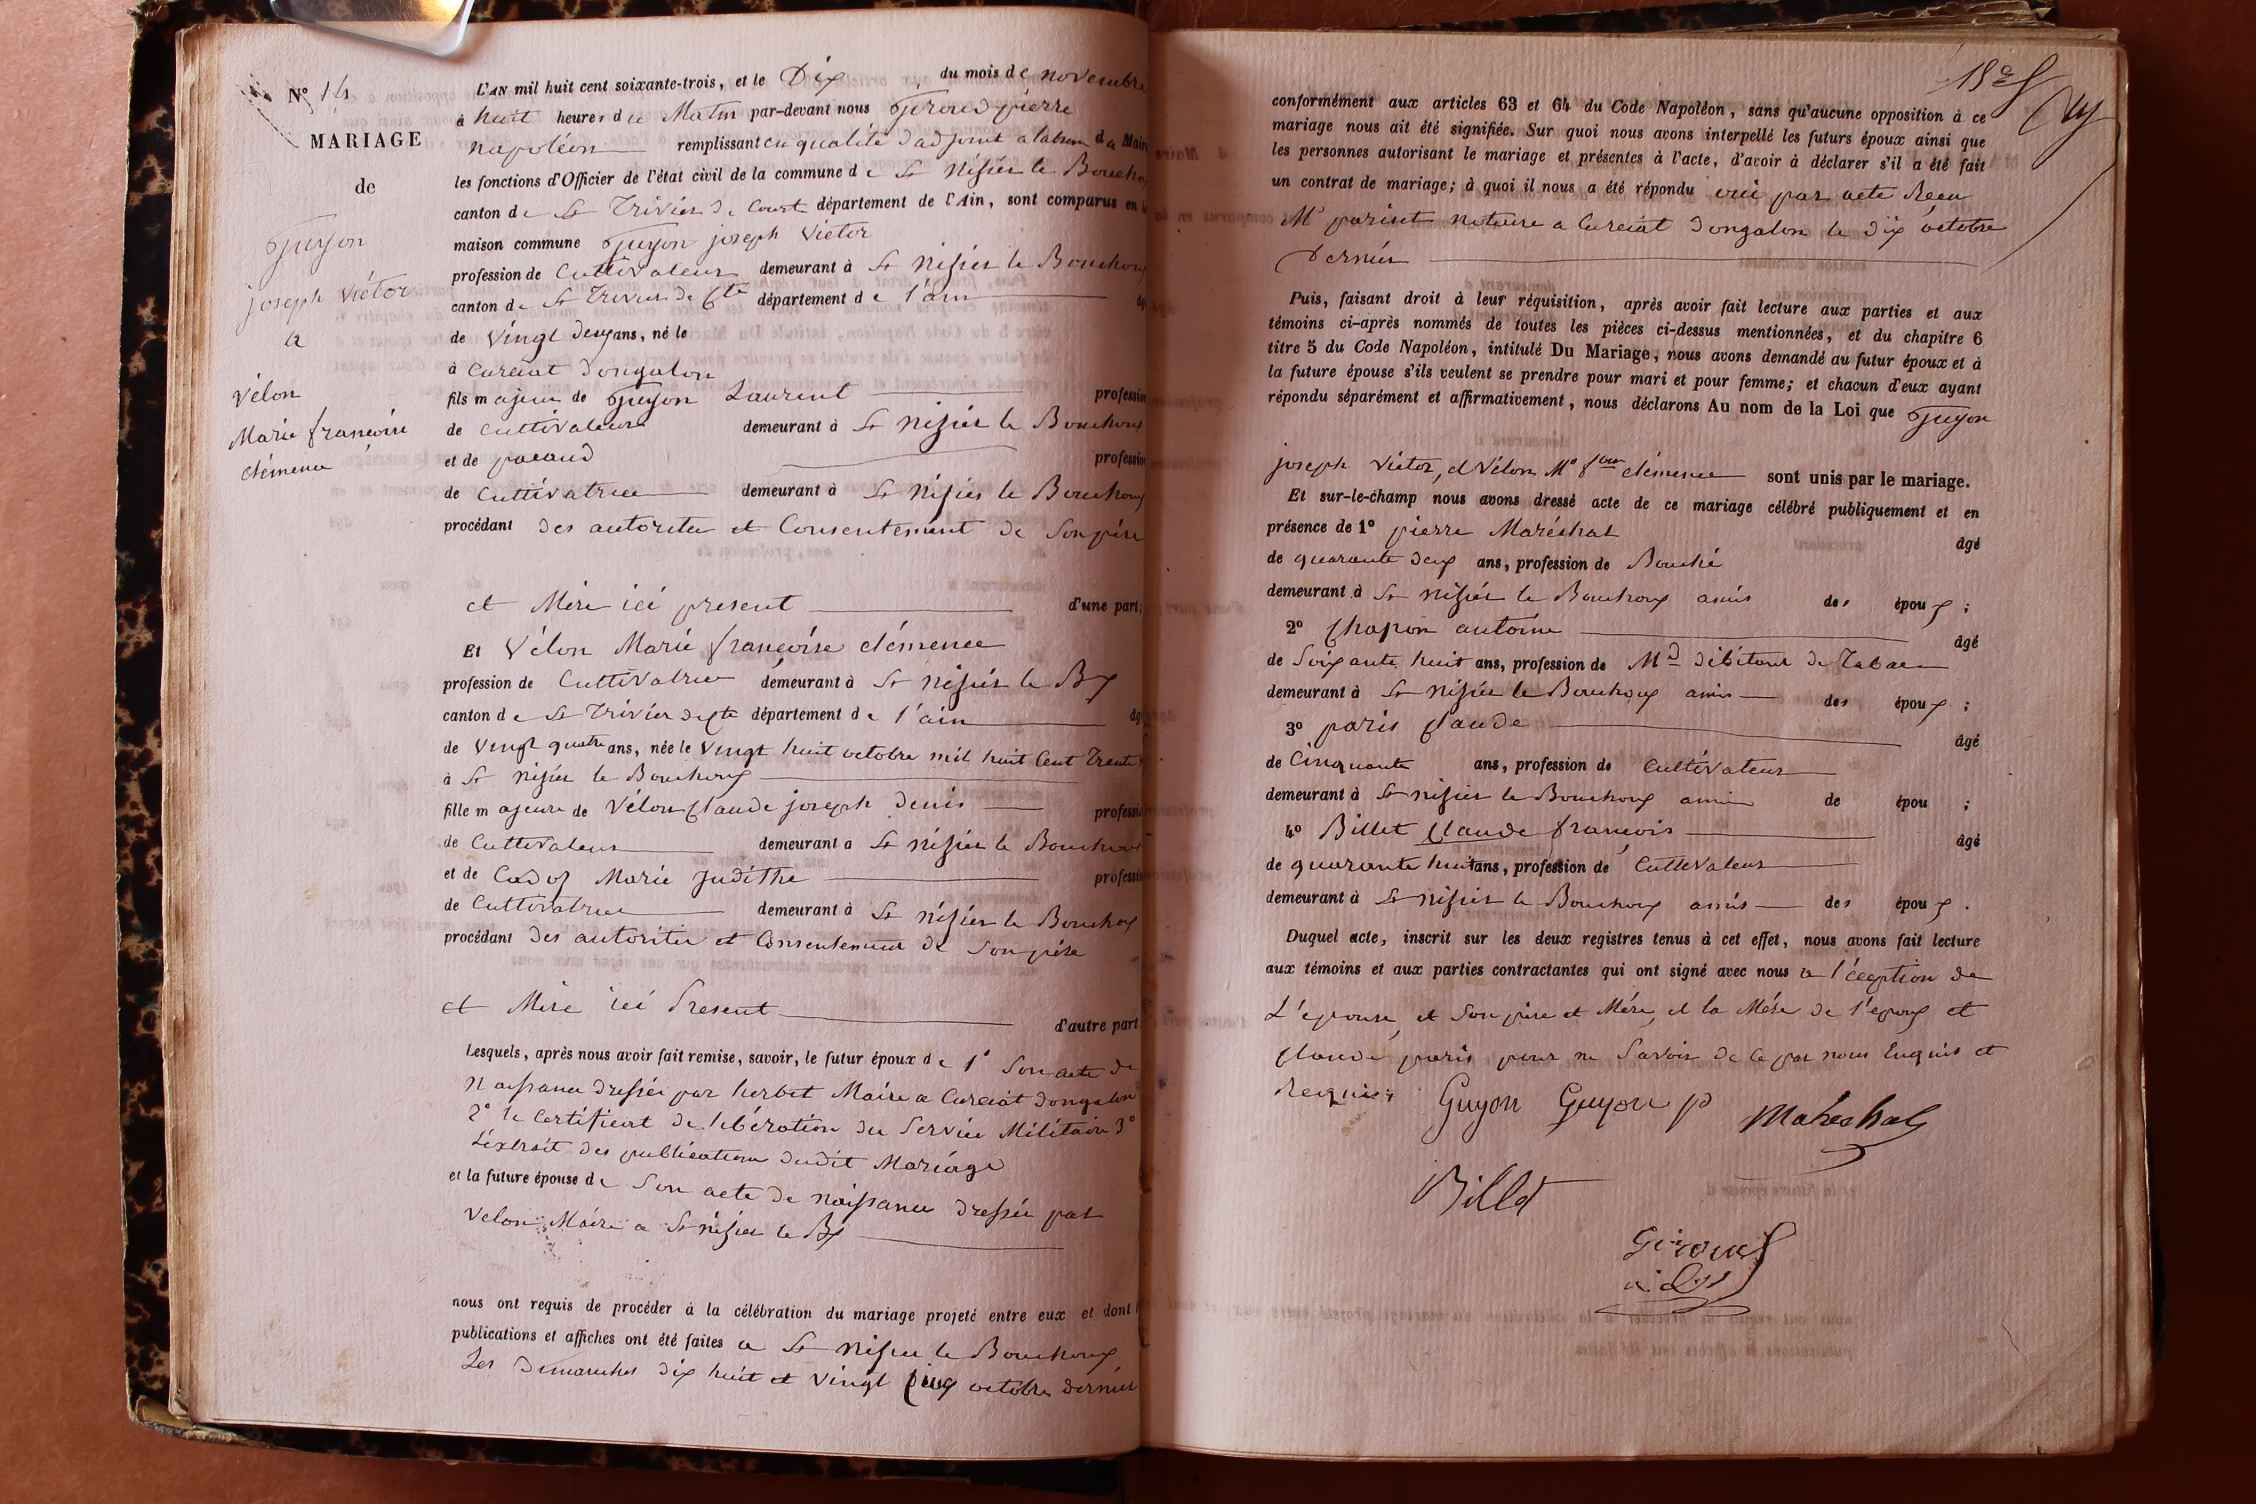 N° 14
MARIAGE
de
Guyon
joseph Victor
a
Vélon
Marie françoise
clémence
L'AN mil huit cent soixante-trois, et le Dix du mois de novembre
à huit heures du Matin par-devant nous pierre
napoléon remplissant en qualité d'adjoint du Maire
les fonctions d'Officier de l'état civil de la commune de St Nizier le Bouchoux
canton de St Trivier de Courte département de l'Ain, sont comparus en la
maison commune Guyon joseph Victor
profession de Cultivateur demeurant à St Nizier le Bouchoux
canton de St Trivier de Cte département de l'ain âgé
de Vingt deux ans, né le
à Curciat dongalon
fils majeur de Guyon Laurent profession
de Cultivateur demeurant à St Nizier le Bouchoux
et de pacaud profession
de Cultivatrice demeurant à St Nizier le Bouchoux
procédant des autorités et Consentement de Son père
et Mère ici present d'une part;
Et Vélon Marie françoise clémence
profession de Cultivatrice demeurant à St Nizier le Bx
canton de St Trivier de Cte département de l'ain âgé
de Vingt quatre ans, née le Vingt huit octobre mil huit Cent Trente
à St Nizier le Bouchoux
fille majeure de Vélon Claude joseph denis profession
de Cultivateur demeurant a St Nizier le Bouchoux
et de Cadoz Marie Judithe profession
de Cultivatrice demeurant à St Nizier le Bouchoux
procédant des autorités et Consentement de Son père
et Mère ici Present d'autre part
Lesquels, après nous avoir fait remise, savoir, le futur époux de 1° Son acte de
Naissance dressée par herbet Maire a Curciat dongalon
2° le Certificat de libération du Service Militaire 3°
L'extrait des publications dudit Mariage
et la future épouse de Son acte de naissance dressée par
Velon Maire a St Nizier le Bx
nous ont requis de procéder à la célébration du mariage projeté entre eux et dont
publications et affiches ont été faites a St Nizier le Bouchoux
Les Dimanches dix huit et Vingt Cinq octobre dernier
conformément aux articles 63 et 64 du Code Napoléon, sans qu'aucune opposition à ce
mariage nous ait été signifiée. Sur quoi nous avons interpellé les futurs époux ainsi que
les personnes autorisant le mariage et présentes à l'acte, d'avoir à déclarer s'il a été fait
un contrat de mariage; à quoi il nous a été répondu oui par acte Recu
Mr notaire a Curciat dongalon le dix octobre
Dernier
Puis, faisant droit à leur réquisition, après avoir fait lecture aux parties et aux
témoins ci-après nommés de toutes les pièces ci-dessus mentionnées, et du chapitre 6
titre 5 du Code Napoléon, intitulé Du Mariage, nous avons demandé au futur époux et à
la future épouse s'ils veulent se prendre pour mari et pour femme; et chacun d'eux ayant
répondu séparément et affirmativement, nous déclarons Au nom de la Loi que Guyon
joseph Victor, et Vélon Me fçoise clémence sont unis par le mariage.
Et sur-le-champ nous avons dressé acte de ce mariage célébré publiquement et en
présence de 1° pierre Maréchal âgé
de quarante deux ans, profession de Bouché
demeurant à St Nizier le Bouchoux amis des époux ;
2° Chapon antoine âgé
de Soixante huit ans, profession de Md débitant de Tabac
demeurant à St Nizier le Bouchoux amis des époux ;
3° paris Claude âgé
de Cinquante ans, profession de Cultivateur
demeurant à St Nizier le Bouchoux amis de épou ;
4° Billet Claude françois âgé
de quarante huit ans, profession de Cultivateur
demeurant à St Nizier le Bouchoux amis des époux .
Duquel acte, inscrit sur les deux registres tenus à cet effet, nous avons fait lecture
aux témoins et aux parties contractantes qui ont signé avec nous a l'éception de
L'epouse, et Son père et Mère, et la Mère de l'epoux et
Claude paris pour ne Savoir de ce par nous Enquis et
Requis
Guyon Guyon p Maréchal
Billet
Giroud